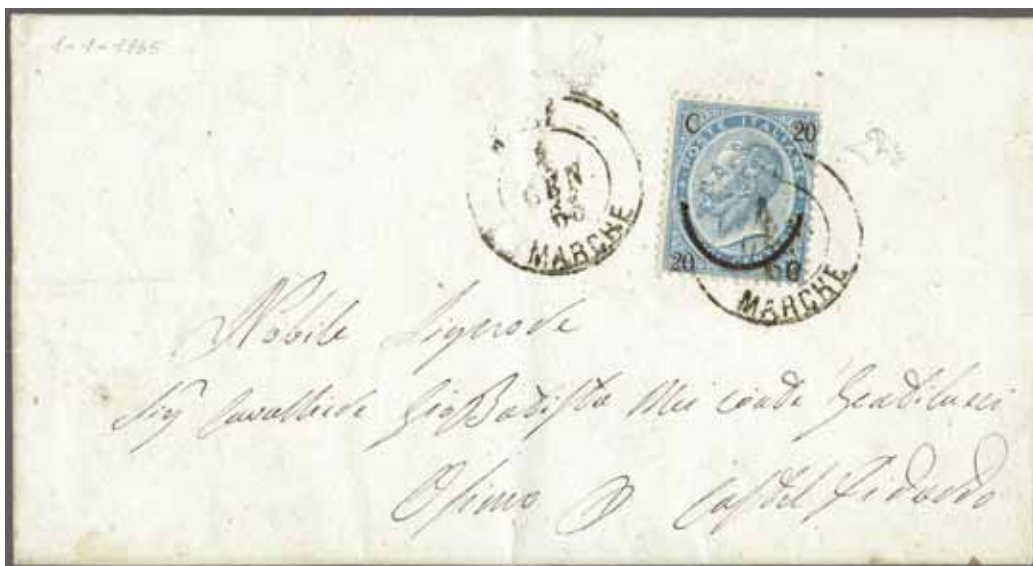 1-1-1865
1
GEN
65
MARCHE
C 20
POSTE ITALIANE
20 C
MARCHE
Nobile Signore
Sig Cavalliere Gio Batista Conte
Osimo p Castel Fidardo